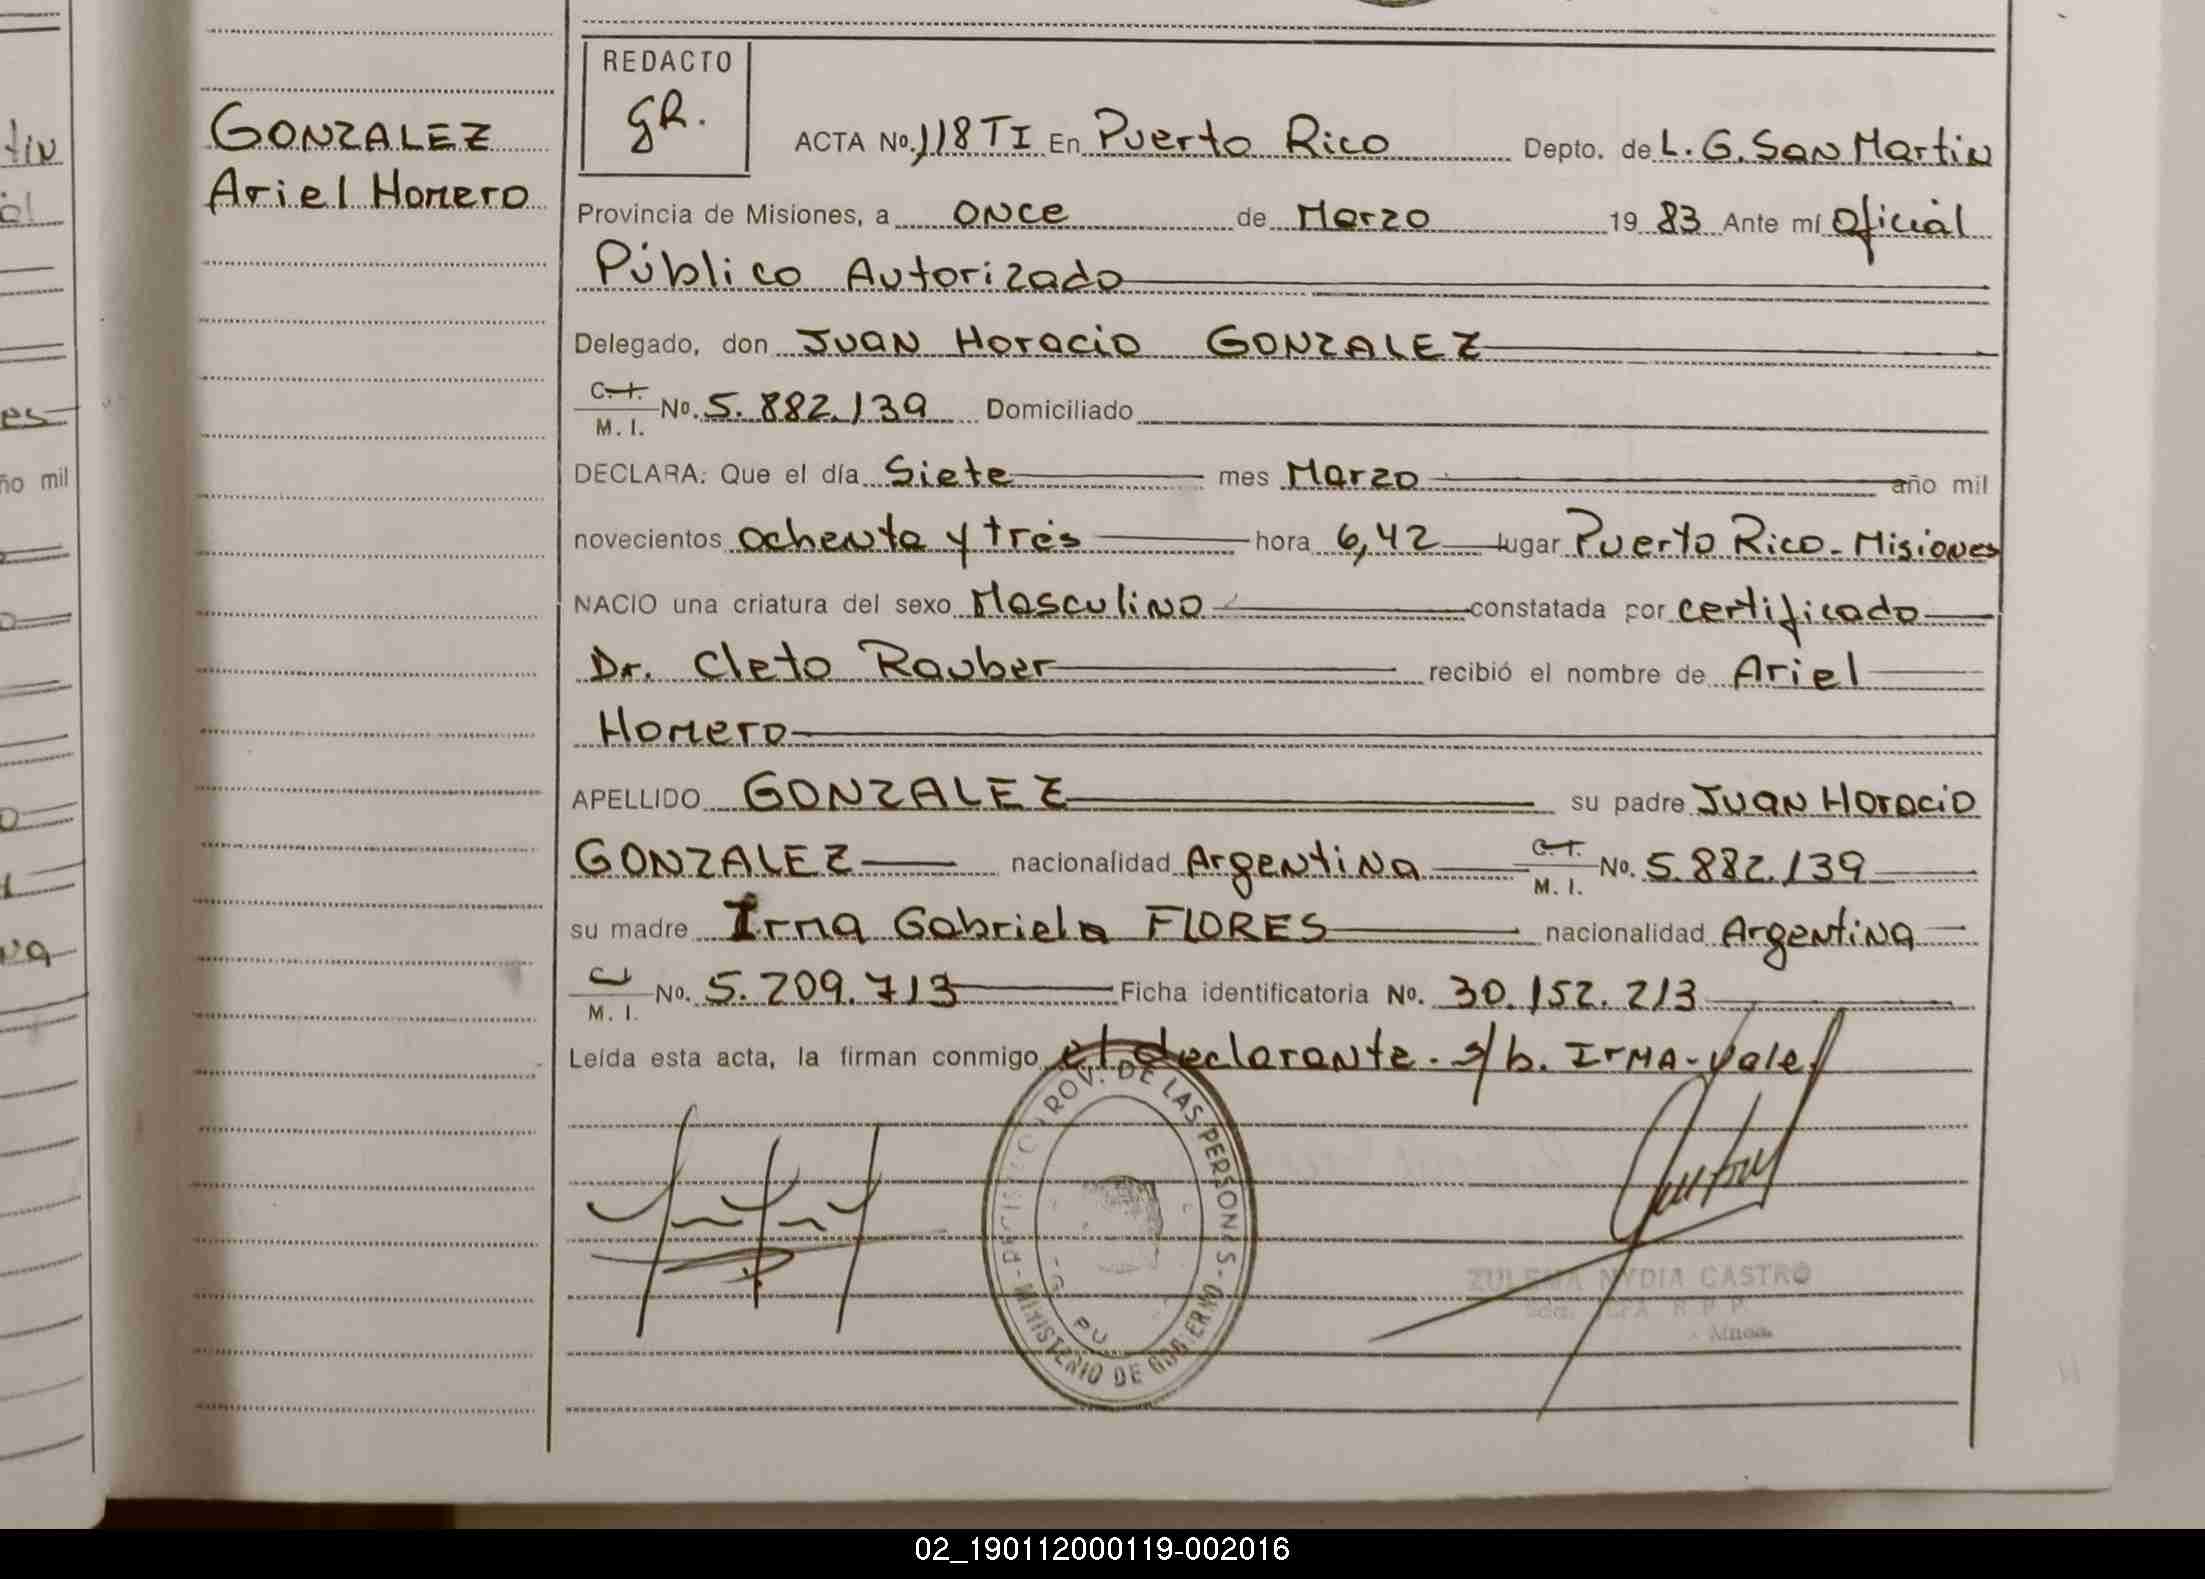 GONZALEZ
Ariel Homero
REDACTO
GR.
ACTA No. 118 TI En Puerto Rico Depto. de L. G. San Martin
Provincia de Misiones, a once de Marzo 1983 Ante mí Oficial
Público Autorizado
Delegado, don Juan Horacio GONZALEZ
C. I. M. I. No. 5.882.139 Domiciliado
DECLARA: Que el día Siete mes Marzo año mil
novecientos ochenta y tres hora 6,42 lugar Puerto Rico - Misiones
NACIO una criatura del sexo Masculino constatada por certificado
Dr. Cleto Rauber recibió el nombre de Ariel
Homero
APELLIDO GONZALEZ su padre Juan Horacio
GONZALEZ nacionalidad Argentina C. I. M. I. No. 5.882.139
su madre Irma Gabriela FLORES nacionalidad Argentina
C. I. M. I. No. 5.209.713 Ficha identificatoria No. 30.152.213
Leída esta acta, la firman conmigo el declarante. s/b. IrMA - Vale
PROV. DE LAS PERSONAS - MINISTERIO DE GOBIERNO -
ZULEMA NYDIA CASTRO
R. P. P.
Mnes.
tin
al
es
ño mil
na
02_190112000119-002016